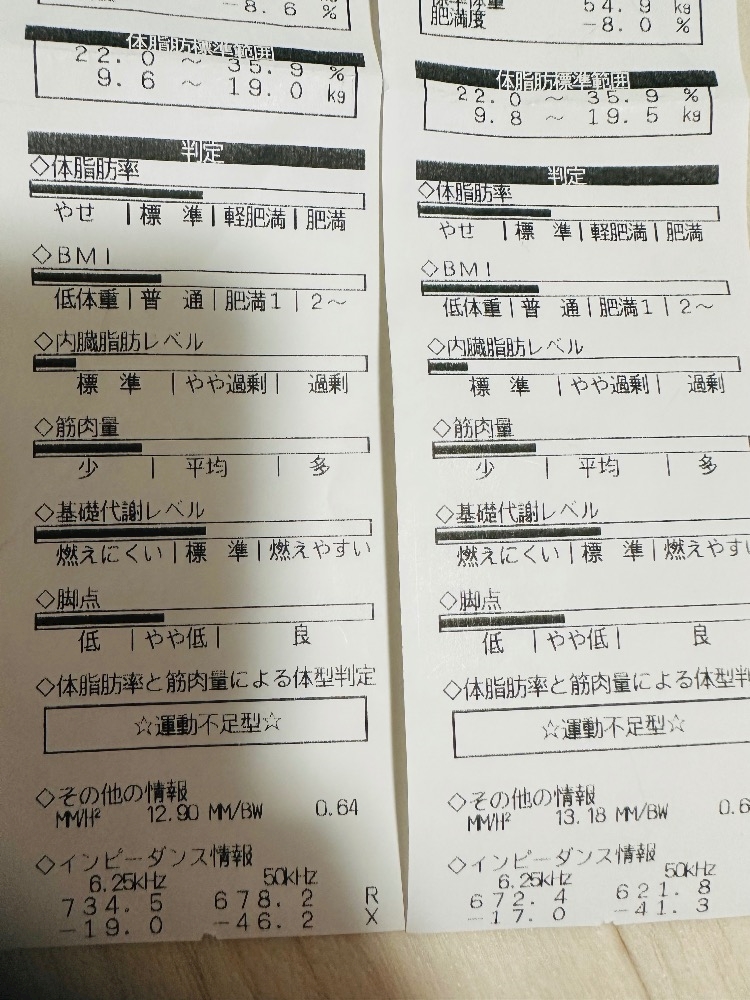 －8.6 %
体脂肪標準範囲
22.0 ～ 35.9 %
9.6 ～ 19.0 kg
判定
◇体脂肪率
やせ | 標 準 | 軽肥満 | 肥満
◇ＢＭＩ
低体重 | 普 通 | 肥満１ | ２～
◇内臓脂肪レベル
標 準 | やや過剰 | 過剰
◇筋肉量
少 | 平均 | 多
◇基礎代謝レベル
燃えにくい | 標 準 | 燃えやすい
◇脚点
低 | やや低 | 良
◇体脂肪率と筋肉量による体型判定
☆運動不足型☆
◇その他の情報
MM/H² 12.90 MM/BW 0.64
◇インピーダンス情報
6.25kHz 50kHz
734.5 678.2 R
－19.0 －46.2 X
54.9 kg
肥満度 －8.0 %
体脂肪標準範囲
22.0 ～ 35.9 %
9.8 ～ 19.5 kg
判定
◇体脂肪率
やせ | 標 準 | 軽肥満 | 肥満
◇ＢＭＩ
低体重 | 普 通 | 肥満１ | ２～
◇内臓脂肪レベル
標 準 | やや過剰 | 過剰
◇筋肉量
少 | 平均 | 多
◇基礎代謝レベル
燃えにくい | 標 準 | 燃えやす
◇脚点
低 | やや低 | 良
◇体脂肪率と筋肉量による体型
☆運動不足型☆
◇その他の情報
MM/H² 13.18 MM/BW 0.6
◇インピーダンス情報
6.25kHz 50kHz
672.4 621.8
－17.0 －41.3